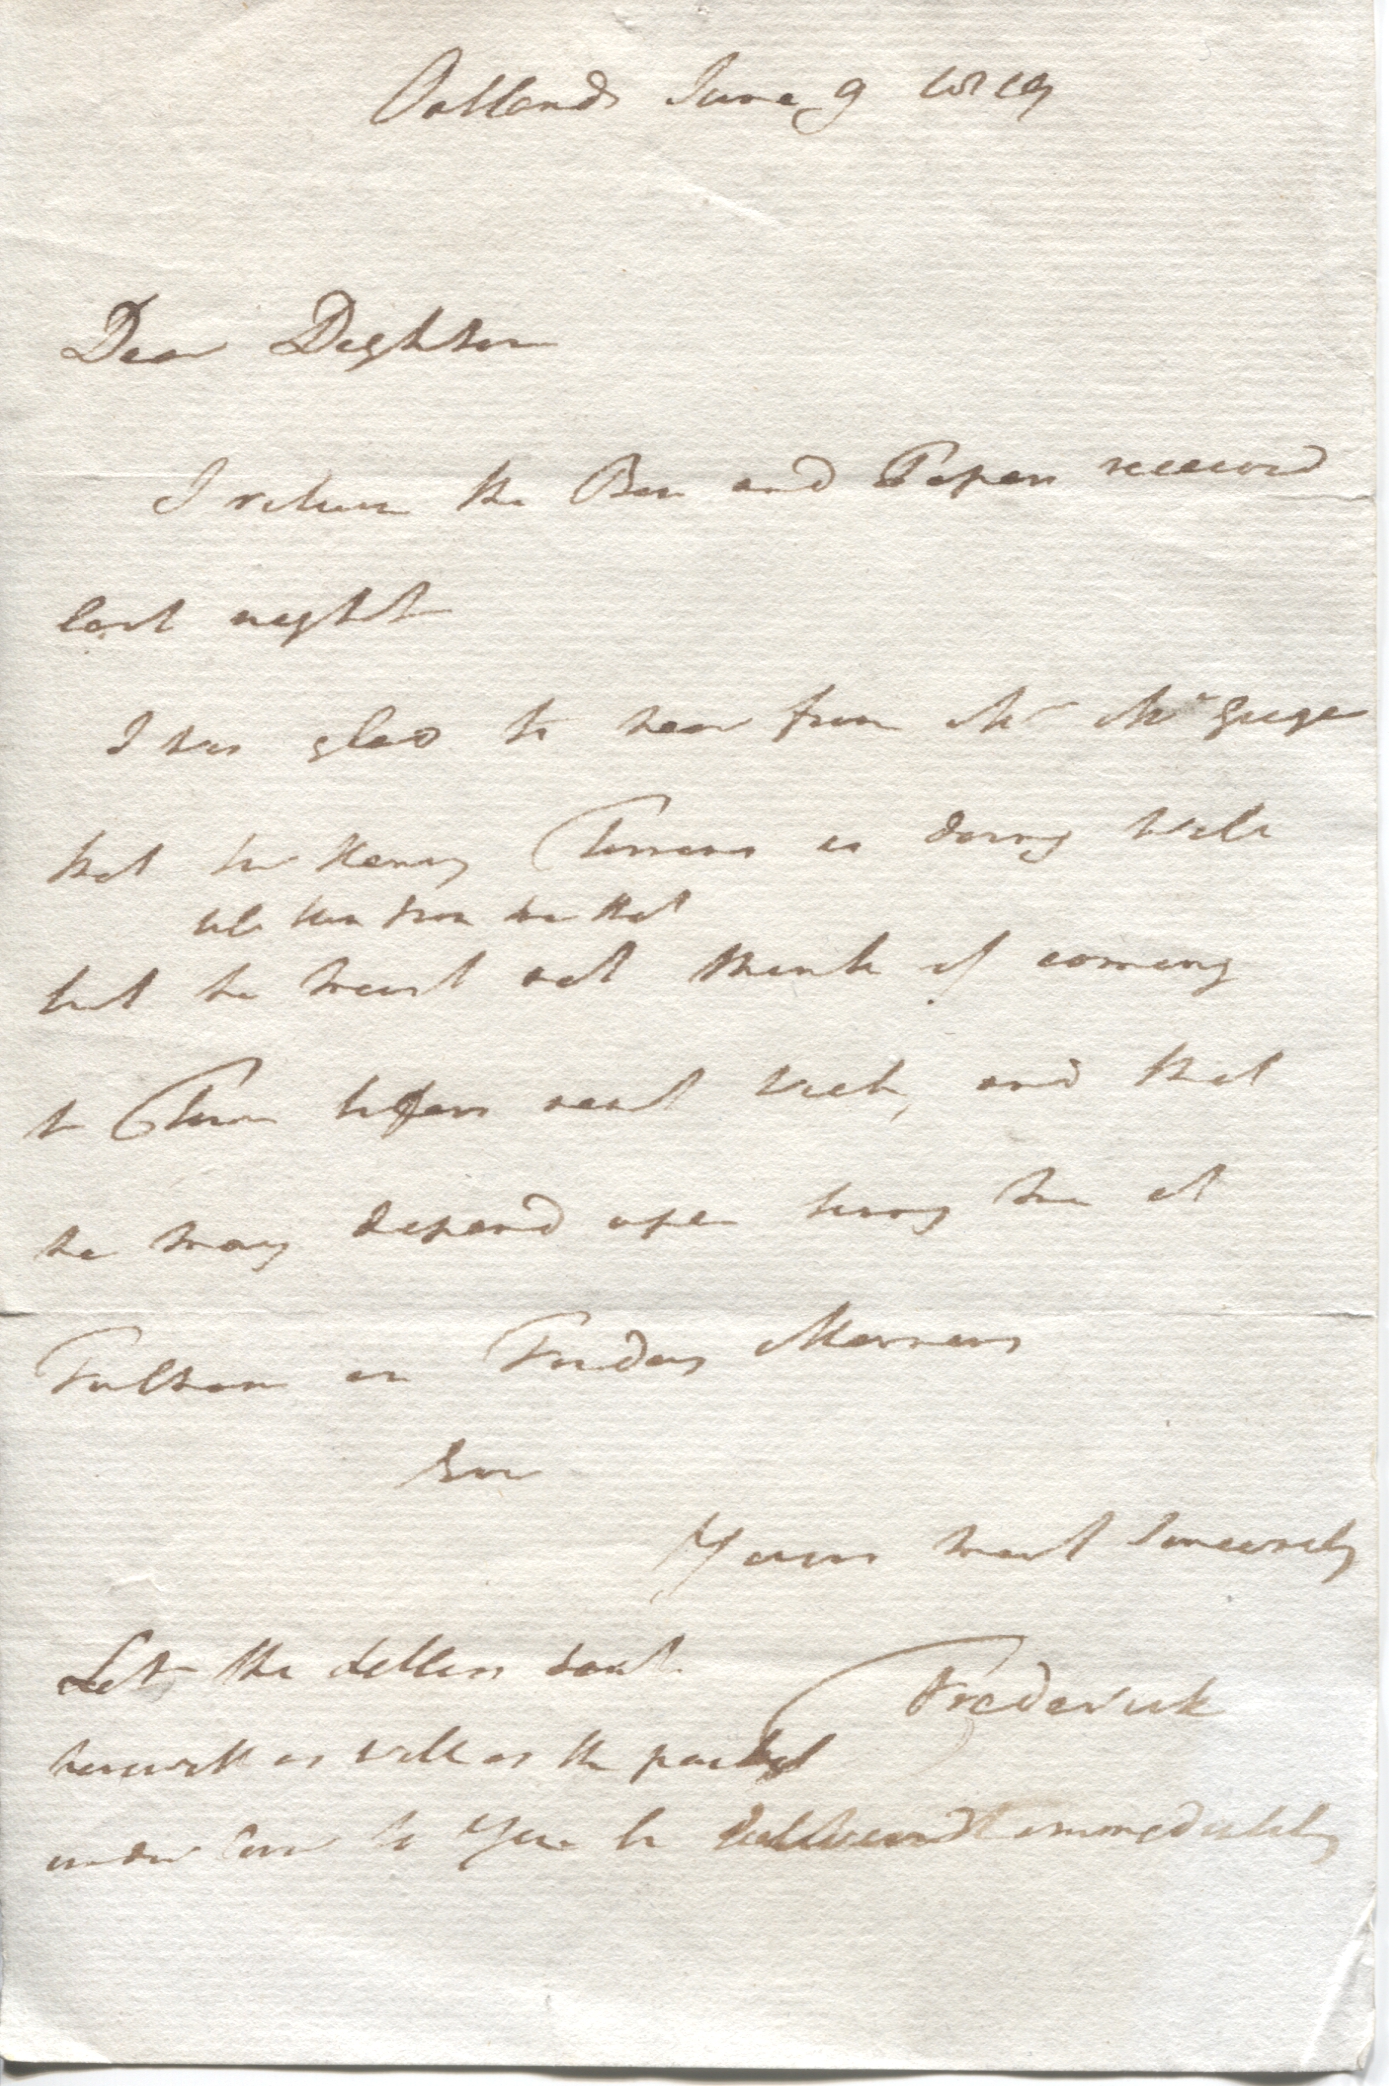 Oatlands June 9 1819
Dear Deighton
I return the Box and Papers received
last night
I was glad to hear from Mr McGregor
that Sir Henry Torrens is doing well
tell him from me that
but he must not think of coming
to Town before next week, and that
he may depend upon seeing me at
Fulham on Friday Morning
Ever
Yours most sincerely
Frederick
Let the Letters sent
herewith as well as the packet
under Cover to You be delivered immediately